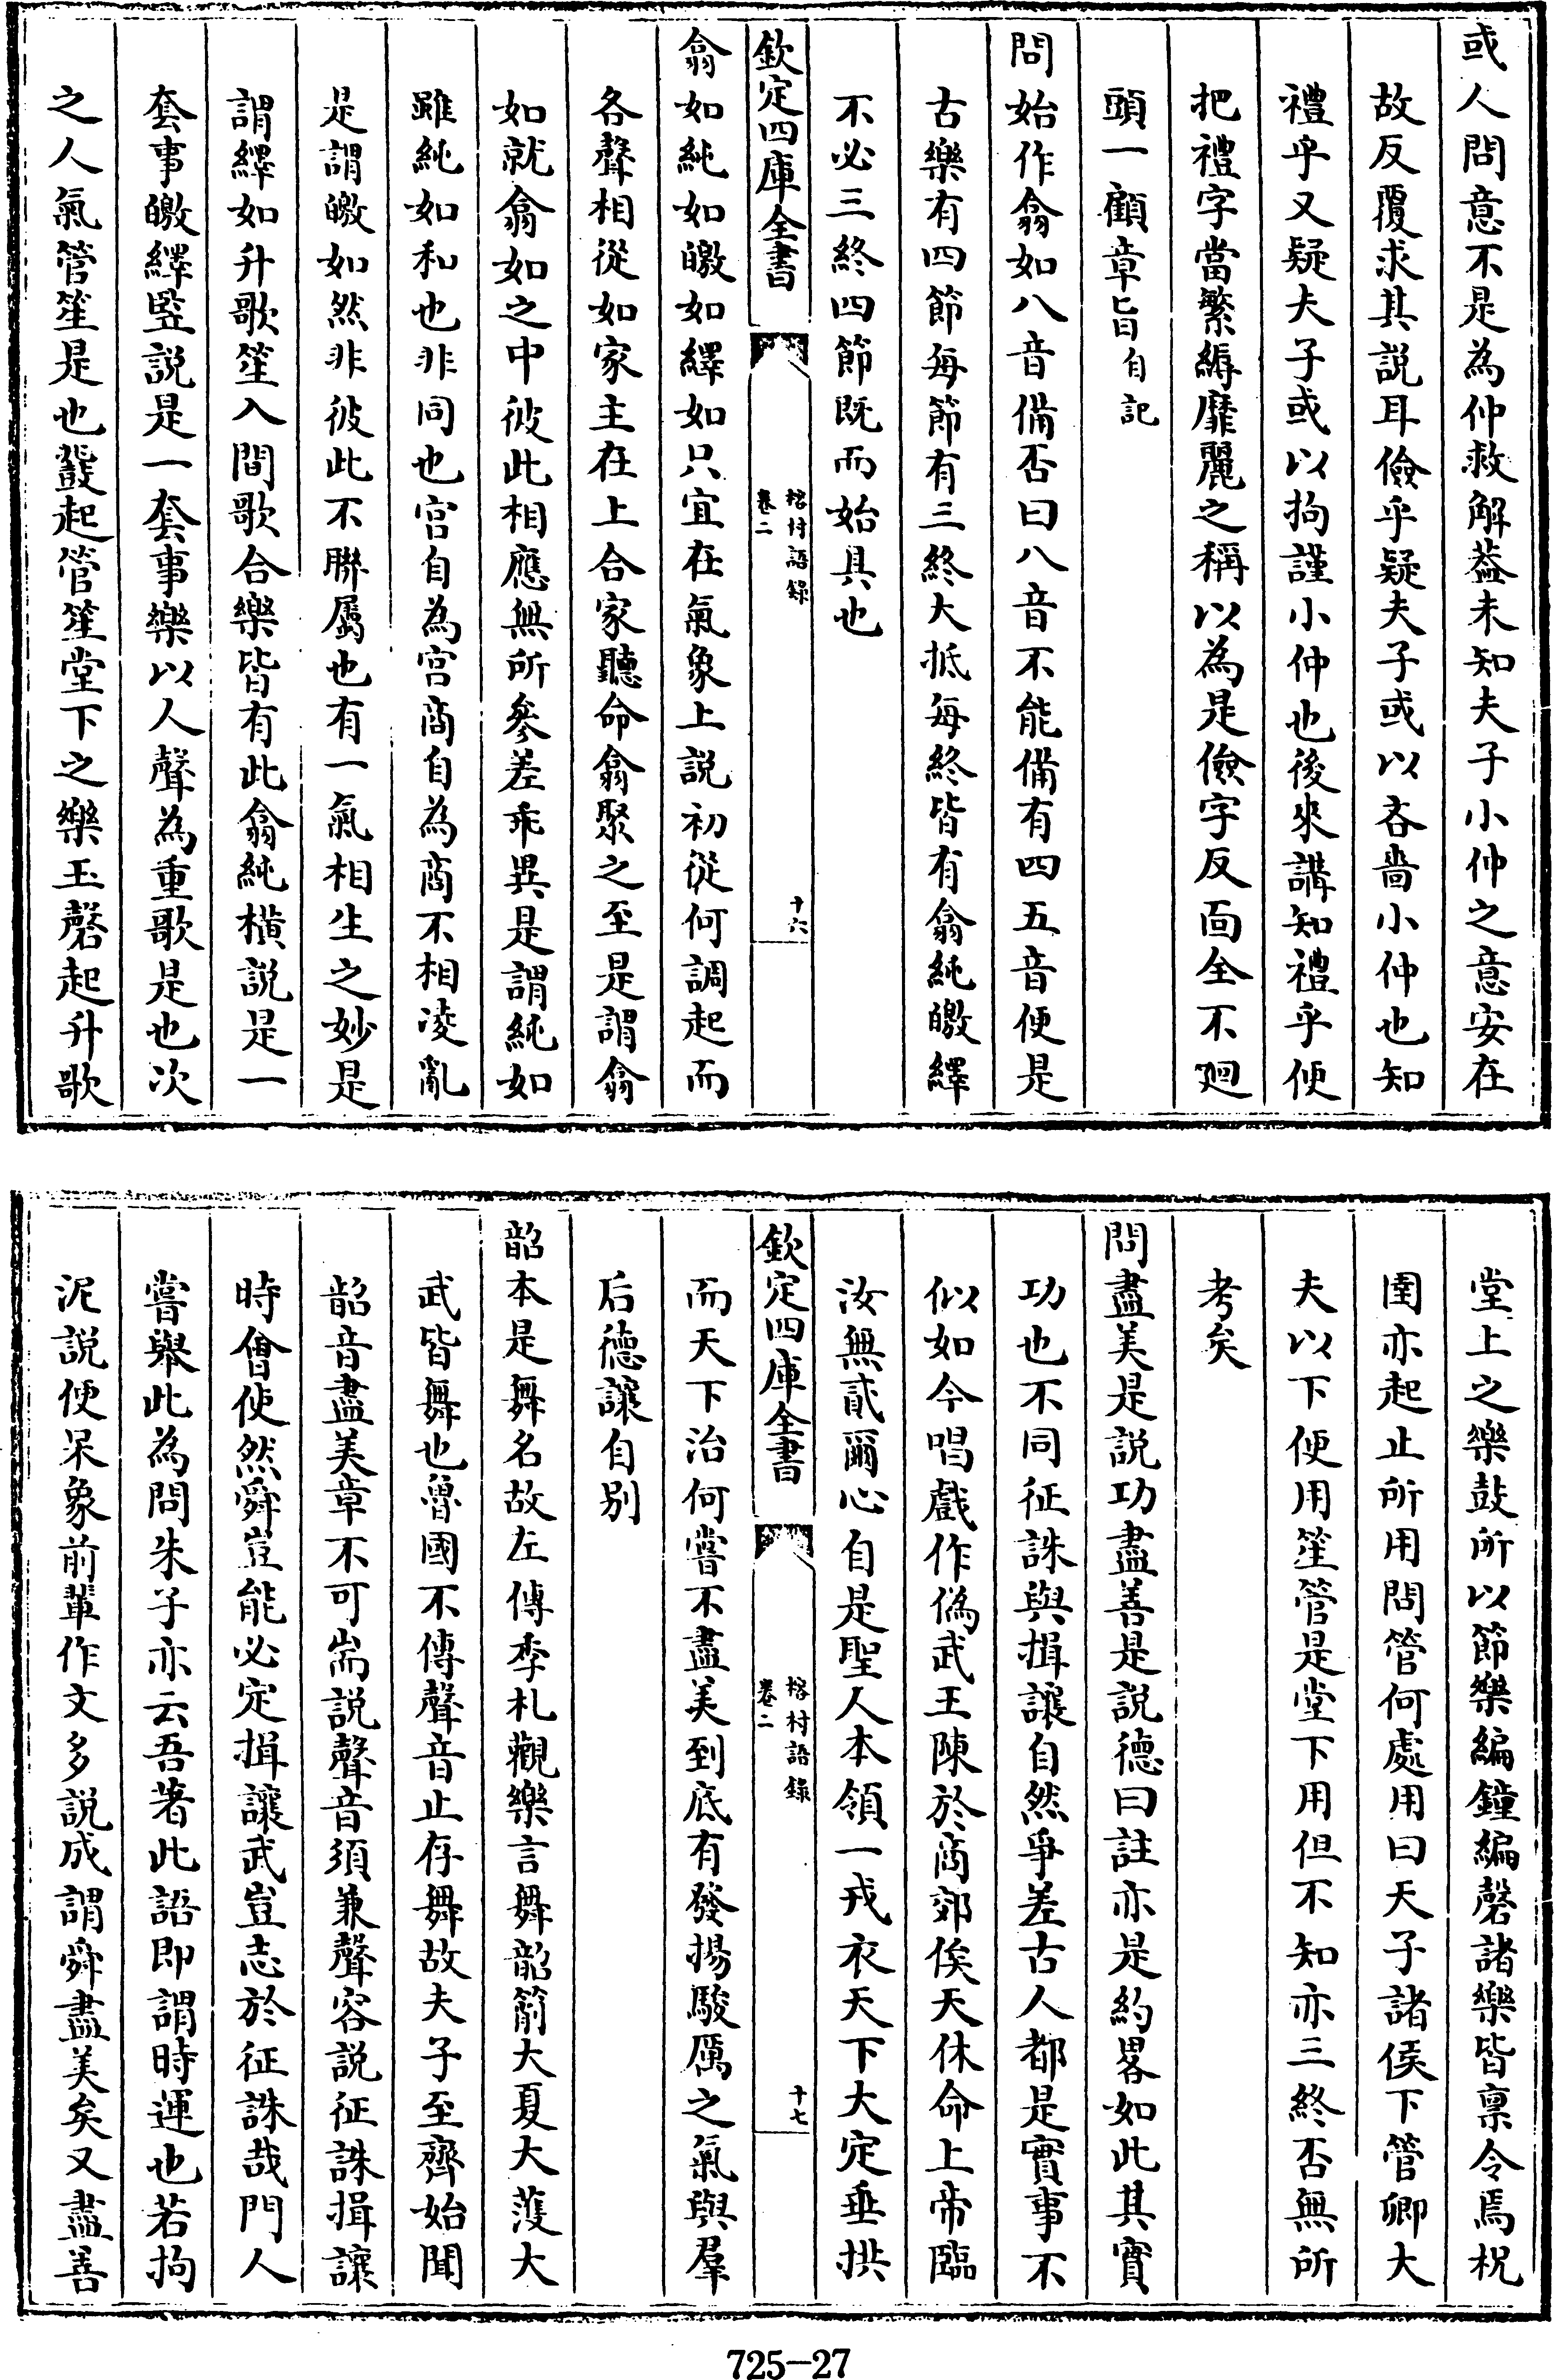 或人問意不是為仲救解葢未知夫子小仲之意安在
故反覆求其説耳儉乎疑夫子或以吝嗇小仲也知
禮乎又疑夫子或以拘謹小仲也後來講知禮乎便
把禮字當繁縟靡麗之稱以為是儉字反面全不廻
頭一顧章旨自記
問始作翕如八音備否曰八音不能備有四五音便是
古樂有四節每節有三終大抵每終皆有翕純皦繹
不必三終四節既而始具也
欽定四庫全書
榕村語錄
卷二
十六
翕如純如皦如繹如只宜在氣象上説初從何調起而
各聲相從如家主在上合家聽命翕聚之至是謂翕
如就翕如之中彼此相應無所參差乖異是謂純如
雖純如和也非同也宫自為宫商自為商不相凌亂
是謂皦如然非彼此不聯屬也有一氣相生之妙是
謂繹如升歌笙入間歌合樂皆有此翕純橫説是一
套事皦繹竪説是一套事樂以人聲為重歌是也次
之人氣管笙是也鼗起管笙堂下之樂玉磬起升歌
堂上之樂鼓所以節樂編鐘編磬諸樂皆禀令焉柷
圉亦起止所用問管何處用曰天子諸侯下管卿大
夫以下便用笙管是堂下用但不知亦三終否無所
考矣
問盡美是説功盡善是説德曰註亦是約畧如此其實
功也不同征誅與揖讓自然爭差古人都是實事不
似如今唱戲作偽武王陳於商郊俟天休命上帝臨
汝無貳爾心自是聖人本領一戎衣天下大定垂拱
欽定四庫全書
榕村語錄
卷二
十七
而天下治何嘗不盡美到底有發揚駿厲之氣與羣
后德讓自别
韶本是舞名故左傳季札觀樂言舞韶箾大夏大濩大
武皆舞也魯國不傳聲音止存舞故夫子至齊始聞
韶音盡美章不可耑説聲音須兼聲容説征誅揖讓
時㑹使然舜豈能必定揖讓武豈志於征誅哉門人
嘗舉此為問朱子亦云吾著此語即謂時運也若拘
泥説便呆象前輩作文多説成謂舜盡美矣又盡善
725-27